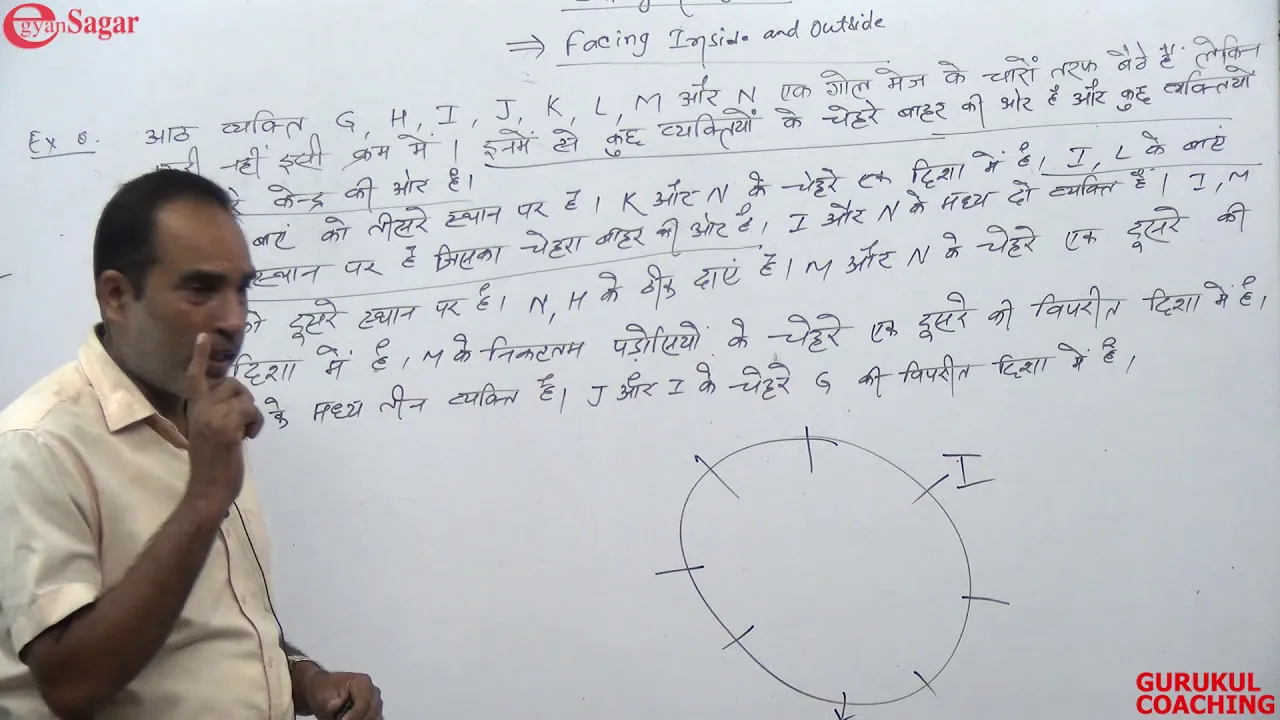 egyanSagar
⇒ Facing Inside and Outside
Ex 8. आठ व्यक्ति G, H, I, J, K, L, M और N एक गोल मेज के चारों तरफ बैठे हैं लेकिन
नहीं इसी क्रम में। इनमें से कुछ व्यक्तियों के चेहरे बाहर की ओर है और कुछ व्यक्तियों
केन्द्र की ओर है।
को तीसरे स्थान पर है। K और N के चेहरे एक दिशा में है। I, L के बाएं
स्थान पर है जिसका चेहरा बाहर की ओर है। I और N के मध्य दो व्यक्ति है। I, M
दूसरे स्थान पर है। N, H के ठीक दाएं है। M और N के चेहरे एक दूसरे की
दिशा में है। M के निकटतम पड़ोसियों के चेहरे एक दूसरे की विपरीत दिशा में है।
के मध्य तीन व्यक्ति है। J और I के चेहरे G की विपरीत दिशा में है।
I
GURUKUL
COACHING